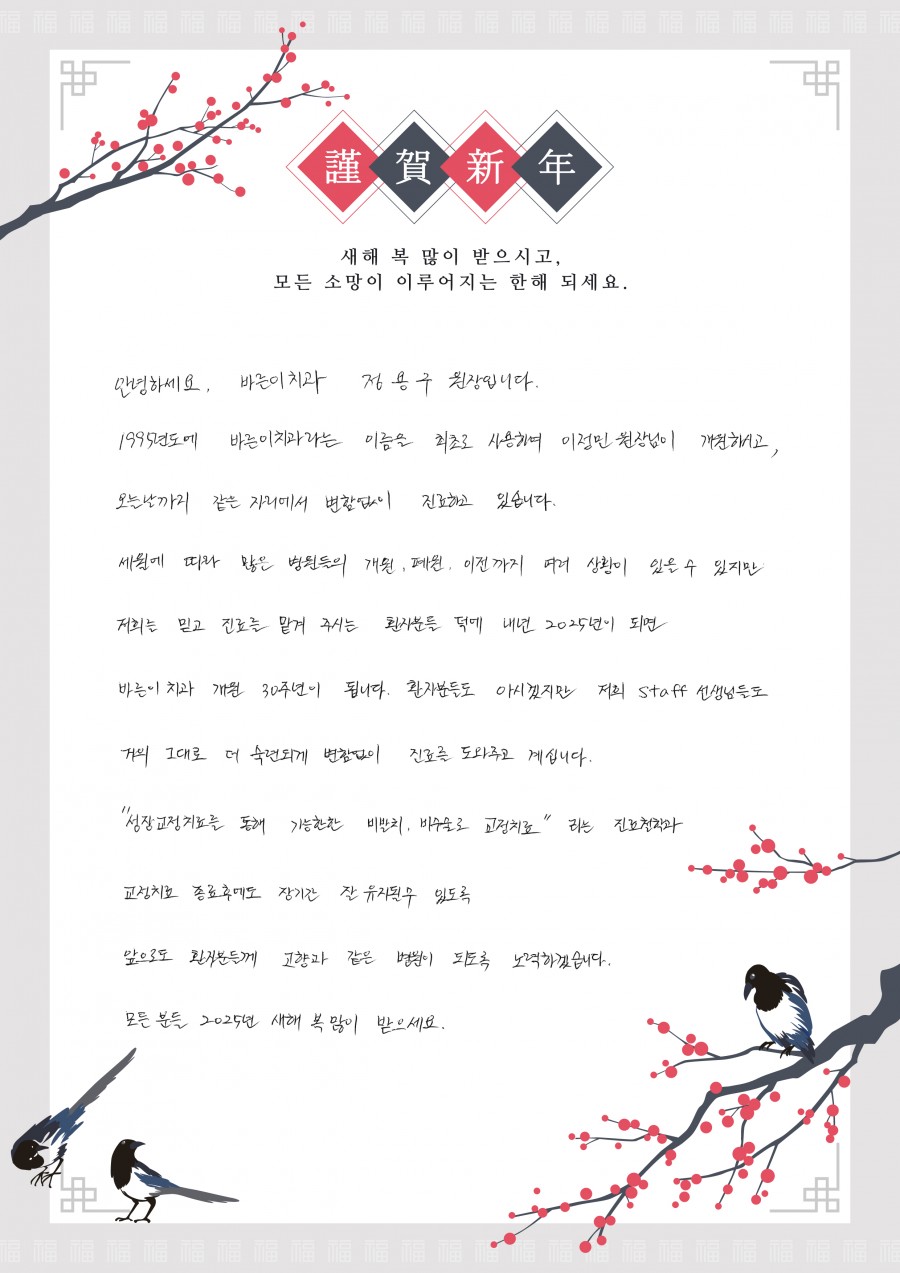 謹賀新年
새해 복 많이 받으시고,
모든 소망이 이루어지는 한해 되세요.
안녕하세요, 바른이치과 정용우 원장입니다.
1995년도에 바른이치과라는 이름을 최초로 사용하여 이정민 원장님이 개원하시고,
오늘날까지 같은 자리에서 변함없이 진료하고 있습니다.
세월에 따라 많은 병원들의 개원, 폐원, 이전까지 여러 상황이 있을 수 있지만
저희는 믿고 진료를 맡겨 주시는 환자분들 덕에 내년 2025년이 되면
바른이치과 개원 30주년이 됩니다. 환자분들도 아시겠지만 저희 staff 선생님들도
거의 그대로 더 숙련되게 변함없이 진료를 도와주고 계십니다.
"성장교정치료를 통해 가능한한 비발치, 비수술로 교정치료" 라는 진료철학과
교정치료 종료후에도 장기간 잘 유지될수 있도록
앞으로도 환자분들께 고향과 같은 병원이 되도록 노력하겠습니다.
모든 분들 2025년 새해 복 많이 받으세요.